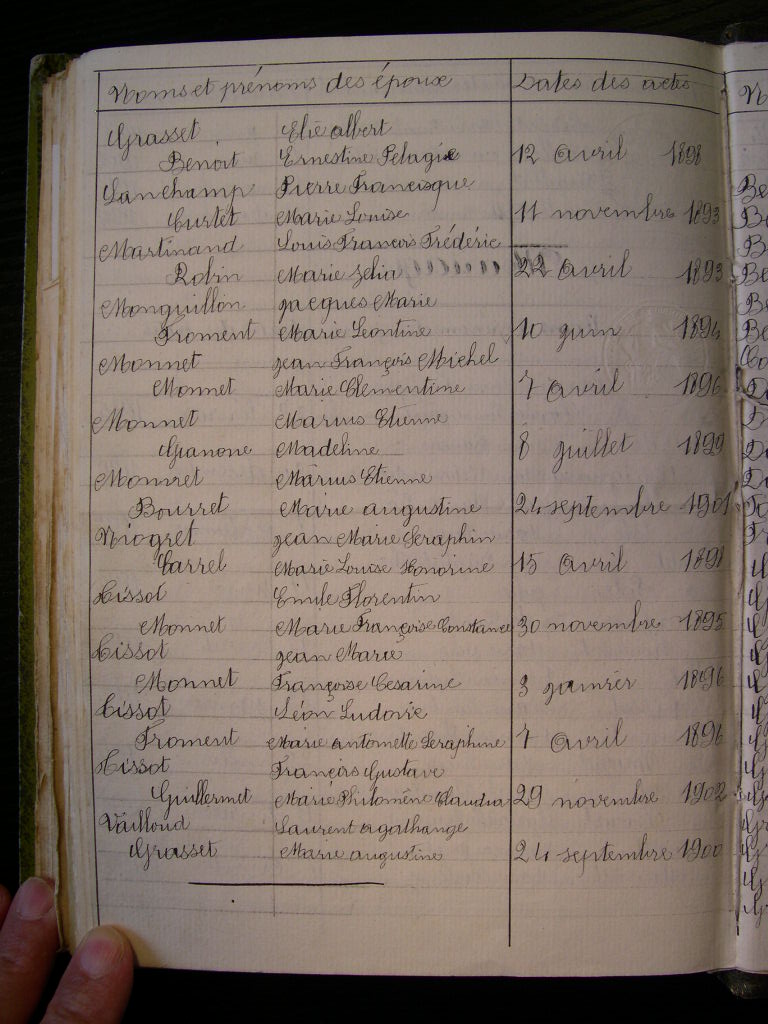 Noms et prénoms des époux Dates des actes
Grasset Elie albert
Benoit Ernestine Pelagie 12 Avril 1898
Lanchamp Pierre Francisque
Curtet Marie Louise 11 novembre 1893
Martinand Louis François Frédéric
Robin Marie Zelia 22 Avril 1893
Monguillon jacques Marie
Froment Marie Leontine 10 juin 1894
Monnet jean François Michel
Monnet Marie Clementine 7 avril 1896
Monnet Marius Etienne
Ganone Madeline 8 juillet 1899
Monnet Marius Etienne
Bourret Marie augustine 24 septembre 1901
Niogret jean Marie Seraphin
Carrel Marie Louise Honorine 15 Avril 1898
Tissot Emile Florentin
Monnet Marie Françoise Constance 30 novembre 1895
Tissot jean Marie
Monnet Françoise Cesarine 3 janvier 1896
Tissot Léon Ludovic
Froment Marie antoinette Seraphine 7 Avril 1896
Tissot François Gustave
Guillermet Marie Philomène Claudia 29 novembre 1902
Vailloud Laurent agathange
Grasset Marie augustine 24 septembre 1900